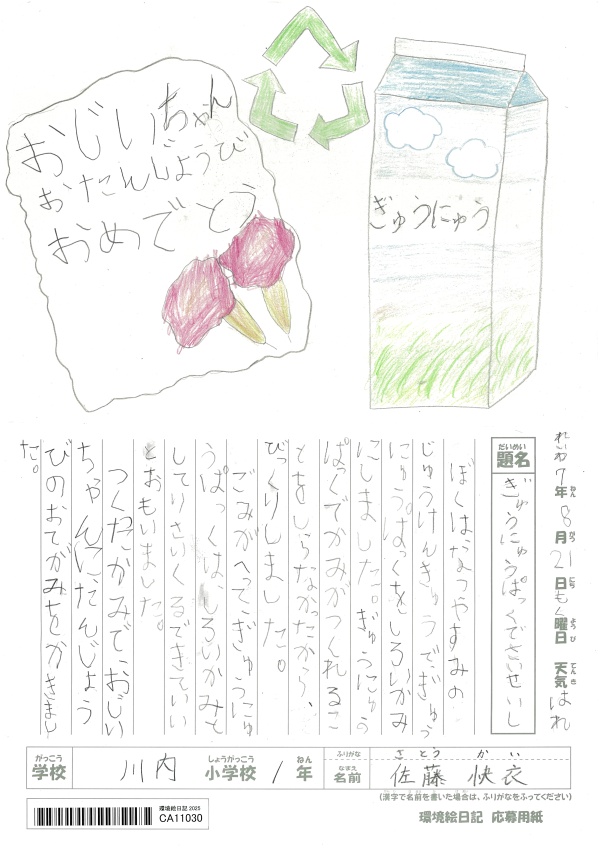 おじいちゃん
おたんじょうび
おめでとう
ぎゅうにゅう
れいわ7年ねん8月がつ21日にちもく曜日ようび 天気てんき はれ
題名だいめい ぎゅうにゅうぱっくでさいせいし
ぼくはなつやすみの
じゆうけんきゅうでぎゅう
にゅうぱっくをしろいかみ
にしました。ぎゅうにゅう
ぱっくでかみがつくれるこ
とをしらなかったから、
びっくりしました。
ごみがへってぎゅうにゅ
うぱっくはしろいかみと
してりさいくるできていい
とおもいました。
つくったかみで、おじい
ちゃんにたんじょう
びのおてがみをかきまし
た。
がっこう しょうがっこう ねん ふりがな さとう かい
学校 川内 小学校 1年 なまえ 名前 佐藤 快衣
(漢字で名前を書いた場合は、ふりがなをふってください)
環境絵日記 2025
CA11030
環境絵日記 応募用紙